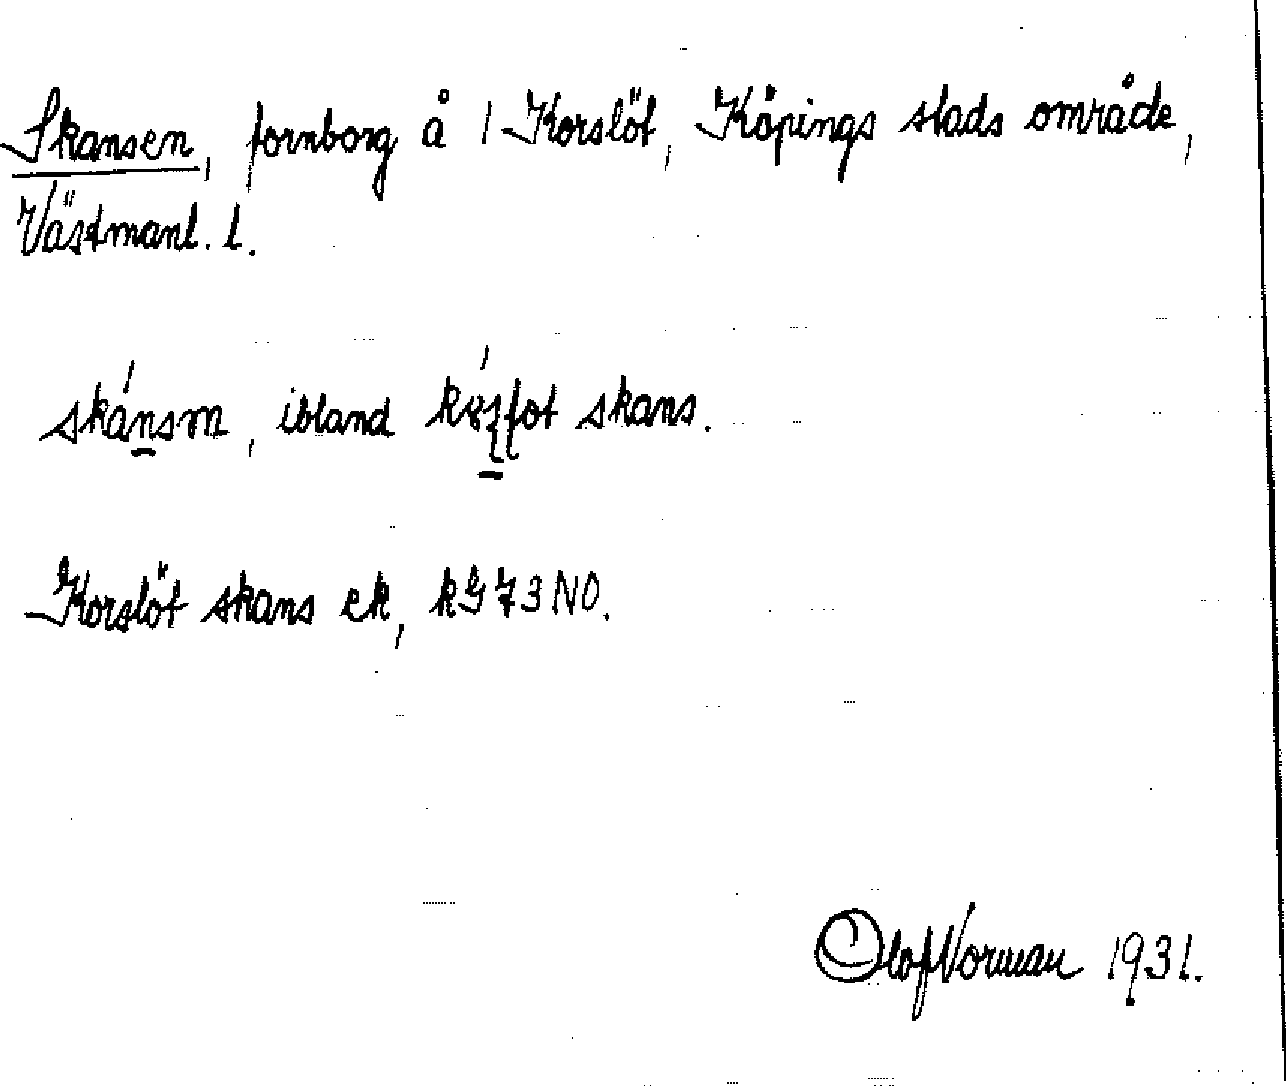 Skansen, fornborg å 1 Korslöt, Köpings stads område,
Västmanl. l.
skánsm, ibland skans.
Korslöt skans ek, kG 73 NO.
Olof Norman 1931.